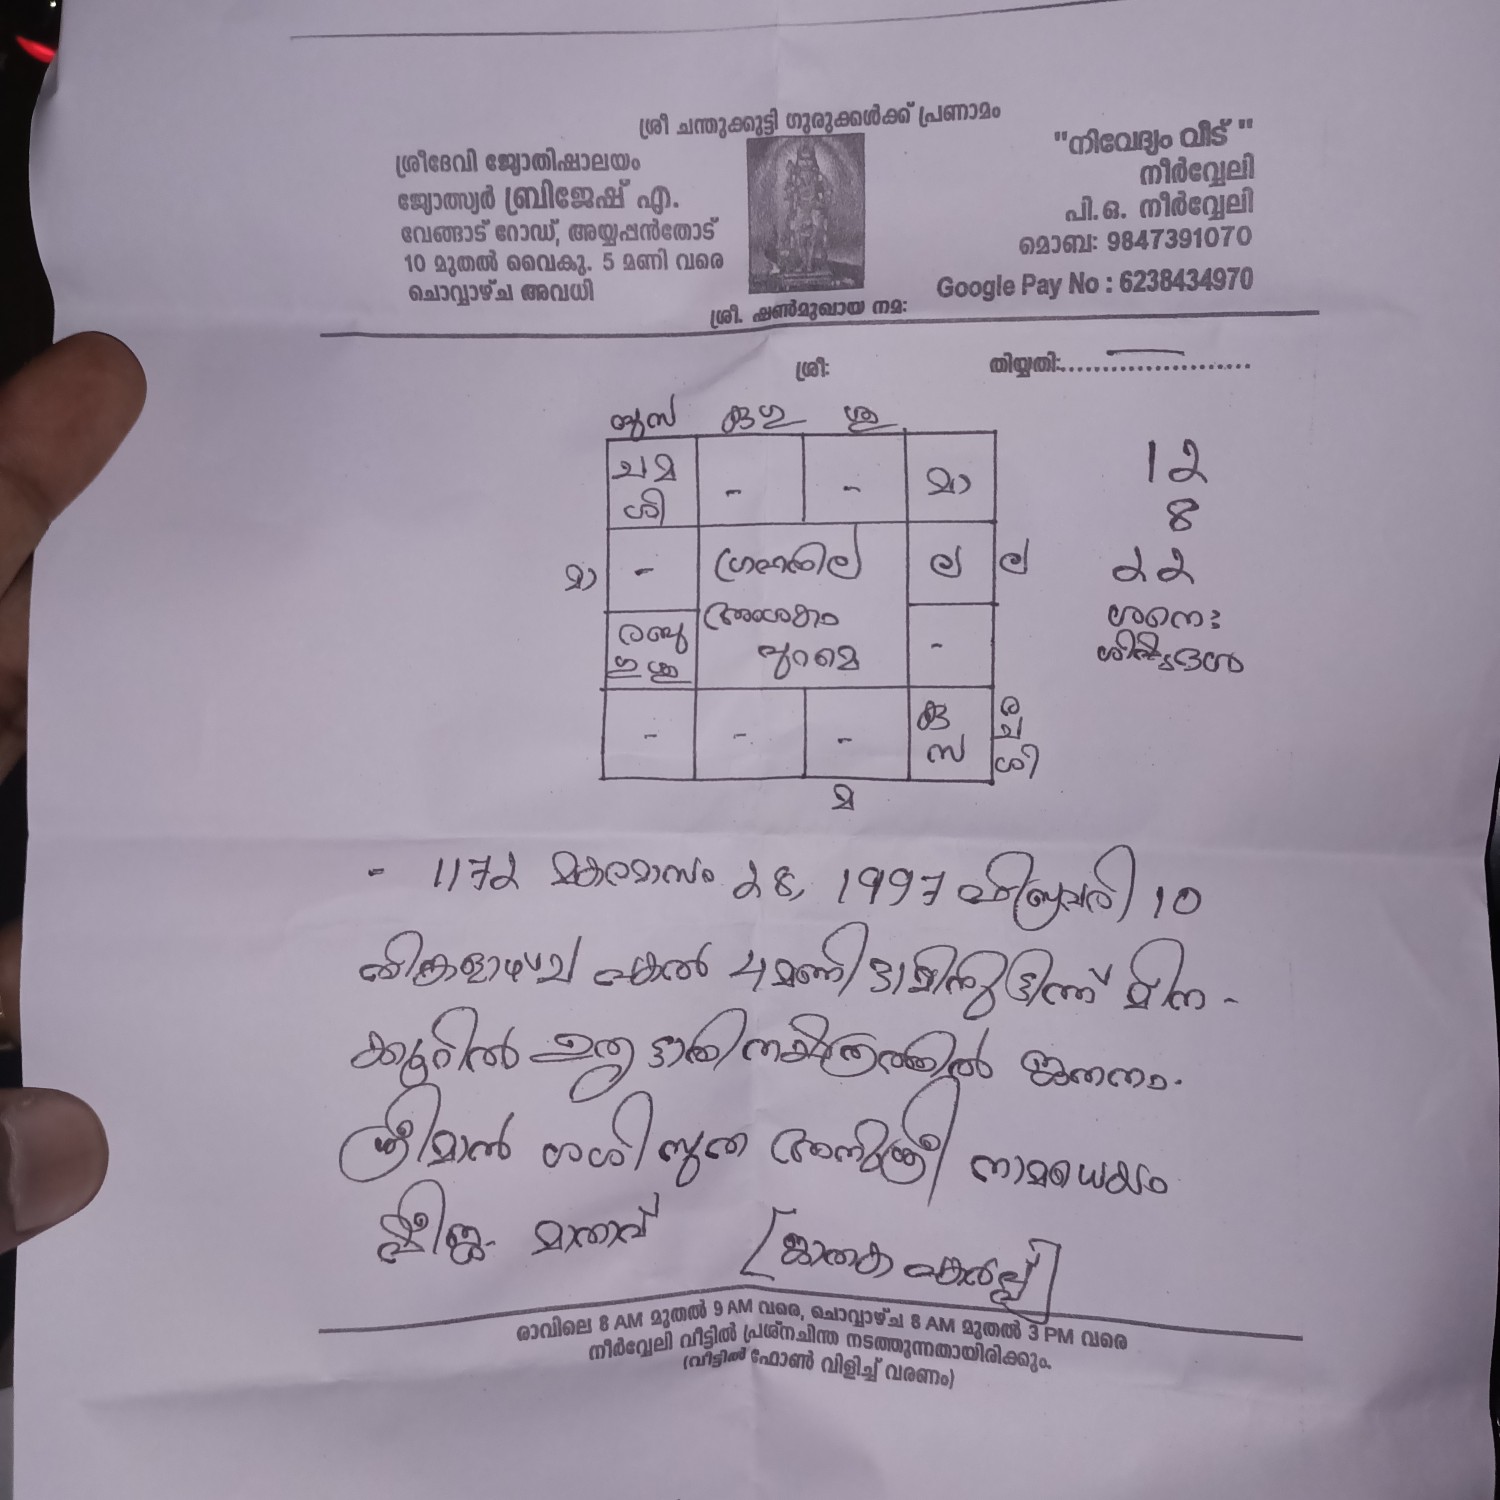 ശ്രീ ചന്തുക്കുട്ടി ഗുരുക്കൾക്ക് പ്രണാമം
ശ്രീദേവി ജ്യോതിഷാലയം
ജ്യോത്സ്യർ ബ്രിജേഷ് എ.
വേങ്ങാട് റോഡ്, അയ്യപ്പൻതോട്
10 മുതൽ വൈകു. 5 മണി വരെ
ചൊവ്വാഴ്ച അവധി
"നിവേദ്യം വീട് "
നീർവ്വേലി
പി.ഒ. നീർവ്വേലി
മൊബ: 9847391070
Google Pay No : 6238434970
ശ്രീ. ഷൺമുഖായ നമ:
ശ്രീ:
തിയ്യതി:........................
ബുസ കുഗു ശു
ചമ - - മാ
ശി
മാ - ഗ്രഹനില ല ല
രബു അംശകം -
ഗുശു പുറമെ
- - - കു ര
സ ച
ശി
മ
12
8
22
ശനെ:
ശിഷ്ടദശ
- 1172 മകരമാസം 28, 1997 ഫിബ്രവരി 10
തിങ്കളാഴ്ച പകൽ 4 മണി 31 മിനുട്ടിന്ന് മീന -
ക്കൂറിൽ ഉത്രട്ടാതി നക്ഷത്രത്തിൽ ജനനം.
ശ്രീമാൻ ശശി സുത അനുശ്രീ നാമധേയം
ഷീജ മാതാവ് [ജാതക പകർപ്പ്]
രാവിലെ 8 AM മുതൽ 9 AM വരെ, ചൊവ്വാഴ്ച 8 AM മുതൽ 3 PM വരെ
നീർവ്വേലി വീട്ടിൽ പ്രശ്നചിന്ത നടത്തുന്നതായിരിക്കും.
(വീട്ടിൽ ഫോൺ വിളിച്ച് വരണം)